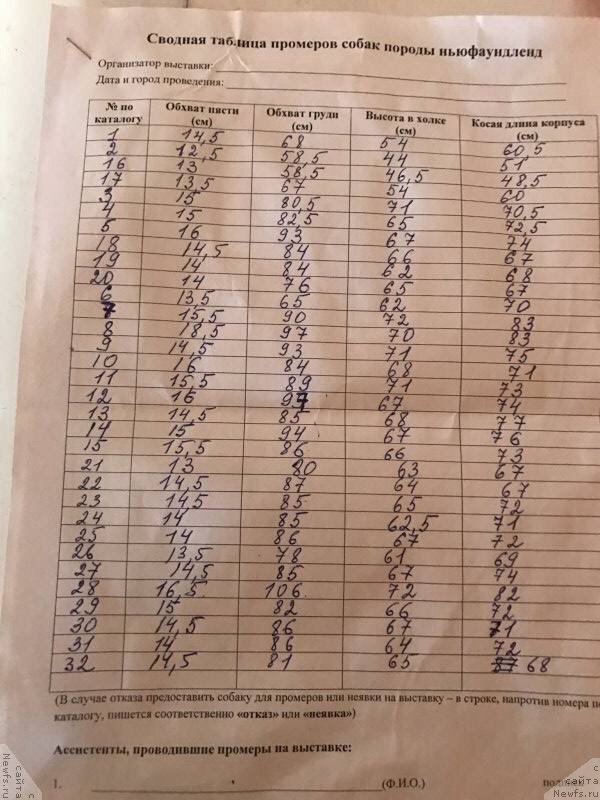 Сводная таблица промеров собак породы ньюфаундленд
Организатор выставки:
Дата и город проведения:
№ по каталогу Обхват пясти (см) Обхват груди (см) Высота в холке (см) Косая длина корпуса (см)
1 14,5 68 54 60,5
2 12,5 58,5 44 51
16 13 56,5 46,5 48,5
17 13,5 67 54 60
3 15 80,5 71 70,5
4 15 82,5 65 72,5
5 16 93 67 74
18 14,5 84 66 67
19 14 84 62 68
20 14 76 65 67
6 13,5 65 62 70
7 15,5 90 72 83
8 18,5 97 70 83
9 14,5 93 71 75
10 16 84 68 71
11 15,5 89 71 73
12 16 97 67 74
13 14,5 85 68 77
14 15 94 67 76
15 15,5 86 66 73
21 13 80 63 67
22 14,5 87 64 67
23 14,5 85 65 72
24 14 85 62,5 71
25 14 86 67 72
26 13,5 78 61 69
27 14,5 85 67 74
28 16,5 106 72 82
29 15 82 66 72
30 14,5 86 67 71
31 14 86 64 72
32 14,5 81 65 68
(В случае отказа предоставить собаку для промеров или неявки на выставку – в строке, напротив номера по
каталогу, пишется соответственно «отказ» или «неявка»)
Ассистенты, проводившие промеры на выставке:
1. (Ф.И.О.) подпись
с сайта Newfs.ru
с сайта Newfs.ru